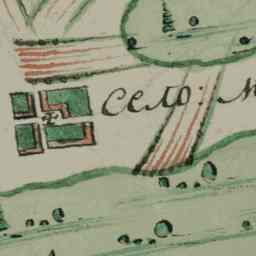 село: М